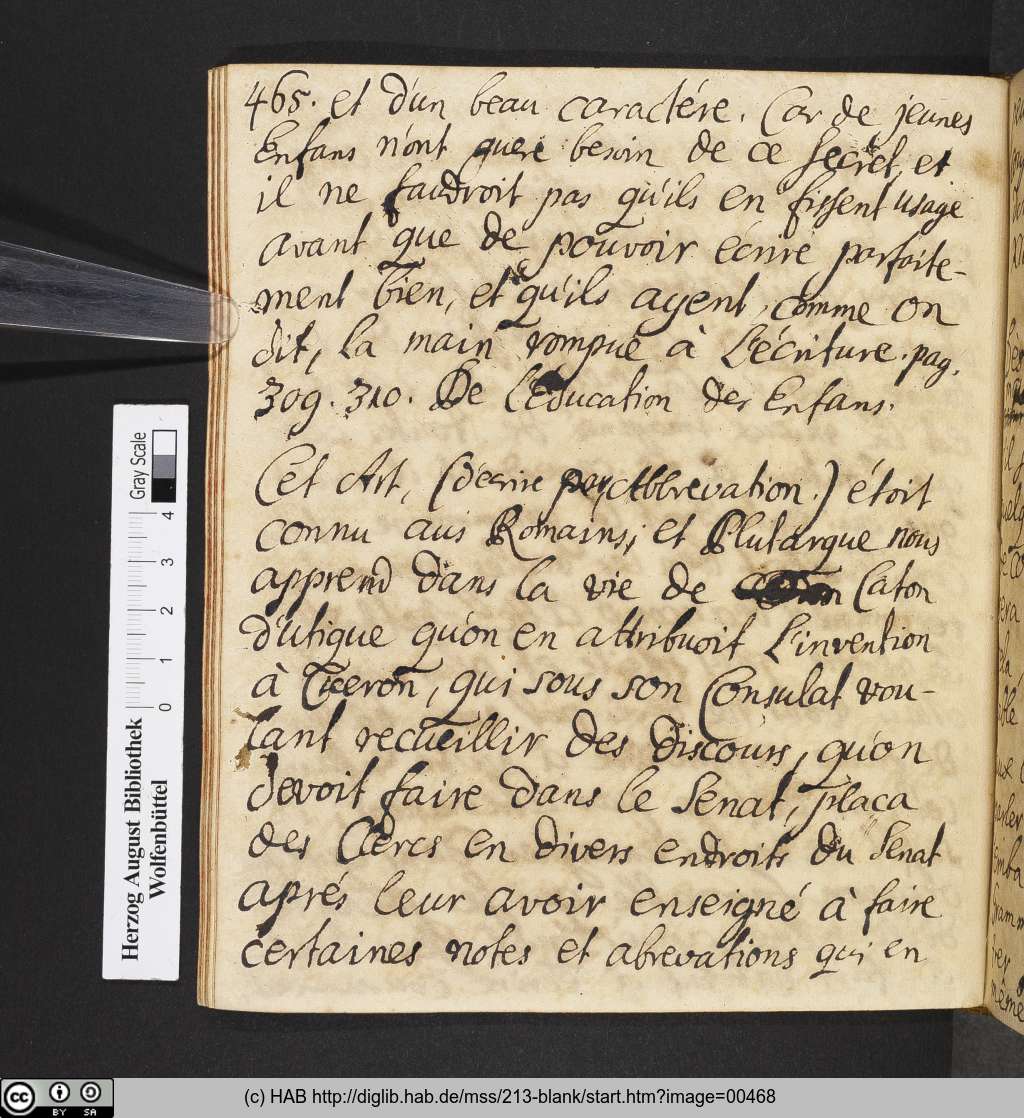 465. et d'un beau caractére. Car de jeunes
Enfans n'ont guere besoin de ce secret, et
il ne faudroit pas qu'ils en fissent usage
avant que de pouvoir écrire parfaite-
ment bien, et qu'ils ayent, comme on
dit, la main rompue à l'écriture. pag.
309. 310. De l'Education des Enfans.
Cet Art, (d'écrire par Abbrevation.) étoit
connu aus Romains; et Plutarque nous
apprend dans la vie de Caton
d'utique qu'on en attribuoit l'invention
à Ciceron, qui sous son Consulat vou-
lant recueillir des discours, qu'on
devoit faire dans le Senat, plaça
des Clercs en divers endroits du Senat
aprés leur avoir enseigné à faire
certaines notes et abrevations qui en
Gray Scale
0 1 2 3 4
Herzog August Bibliothek
Wolfenbüttel
cc BY SA
(c) HAB http://diglib.hab.de/mss/213-blank/start.htm?image=00468